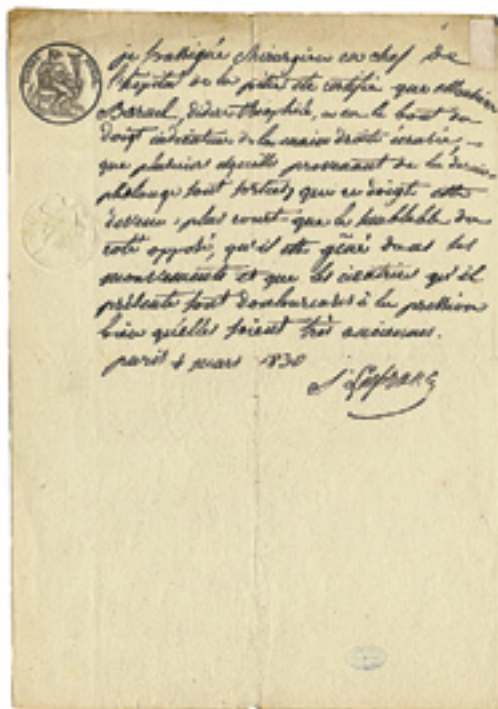 je soussigné chirurgien en chef de
l'hôpital de la pitié etc certifie que
doigt indicateur de la main droite écrasé
que plusieurs esquilles provenant de la
phalange sont sorties, que ce doigt est
devenu plus court que le semblable du
coté opposé, qu'il est gêné dans ses
mouvements et que les cicatrices qu'il
présente sont douloureuses à la pression
bien qu'elles soient très anciennes.
paris 4 mars 1830
Lisfranc